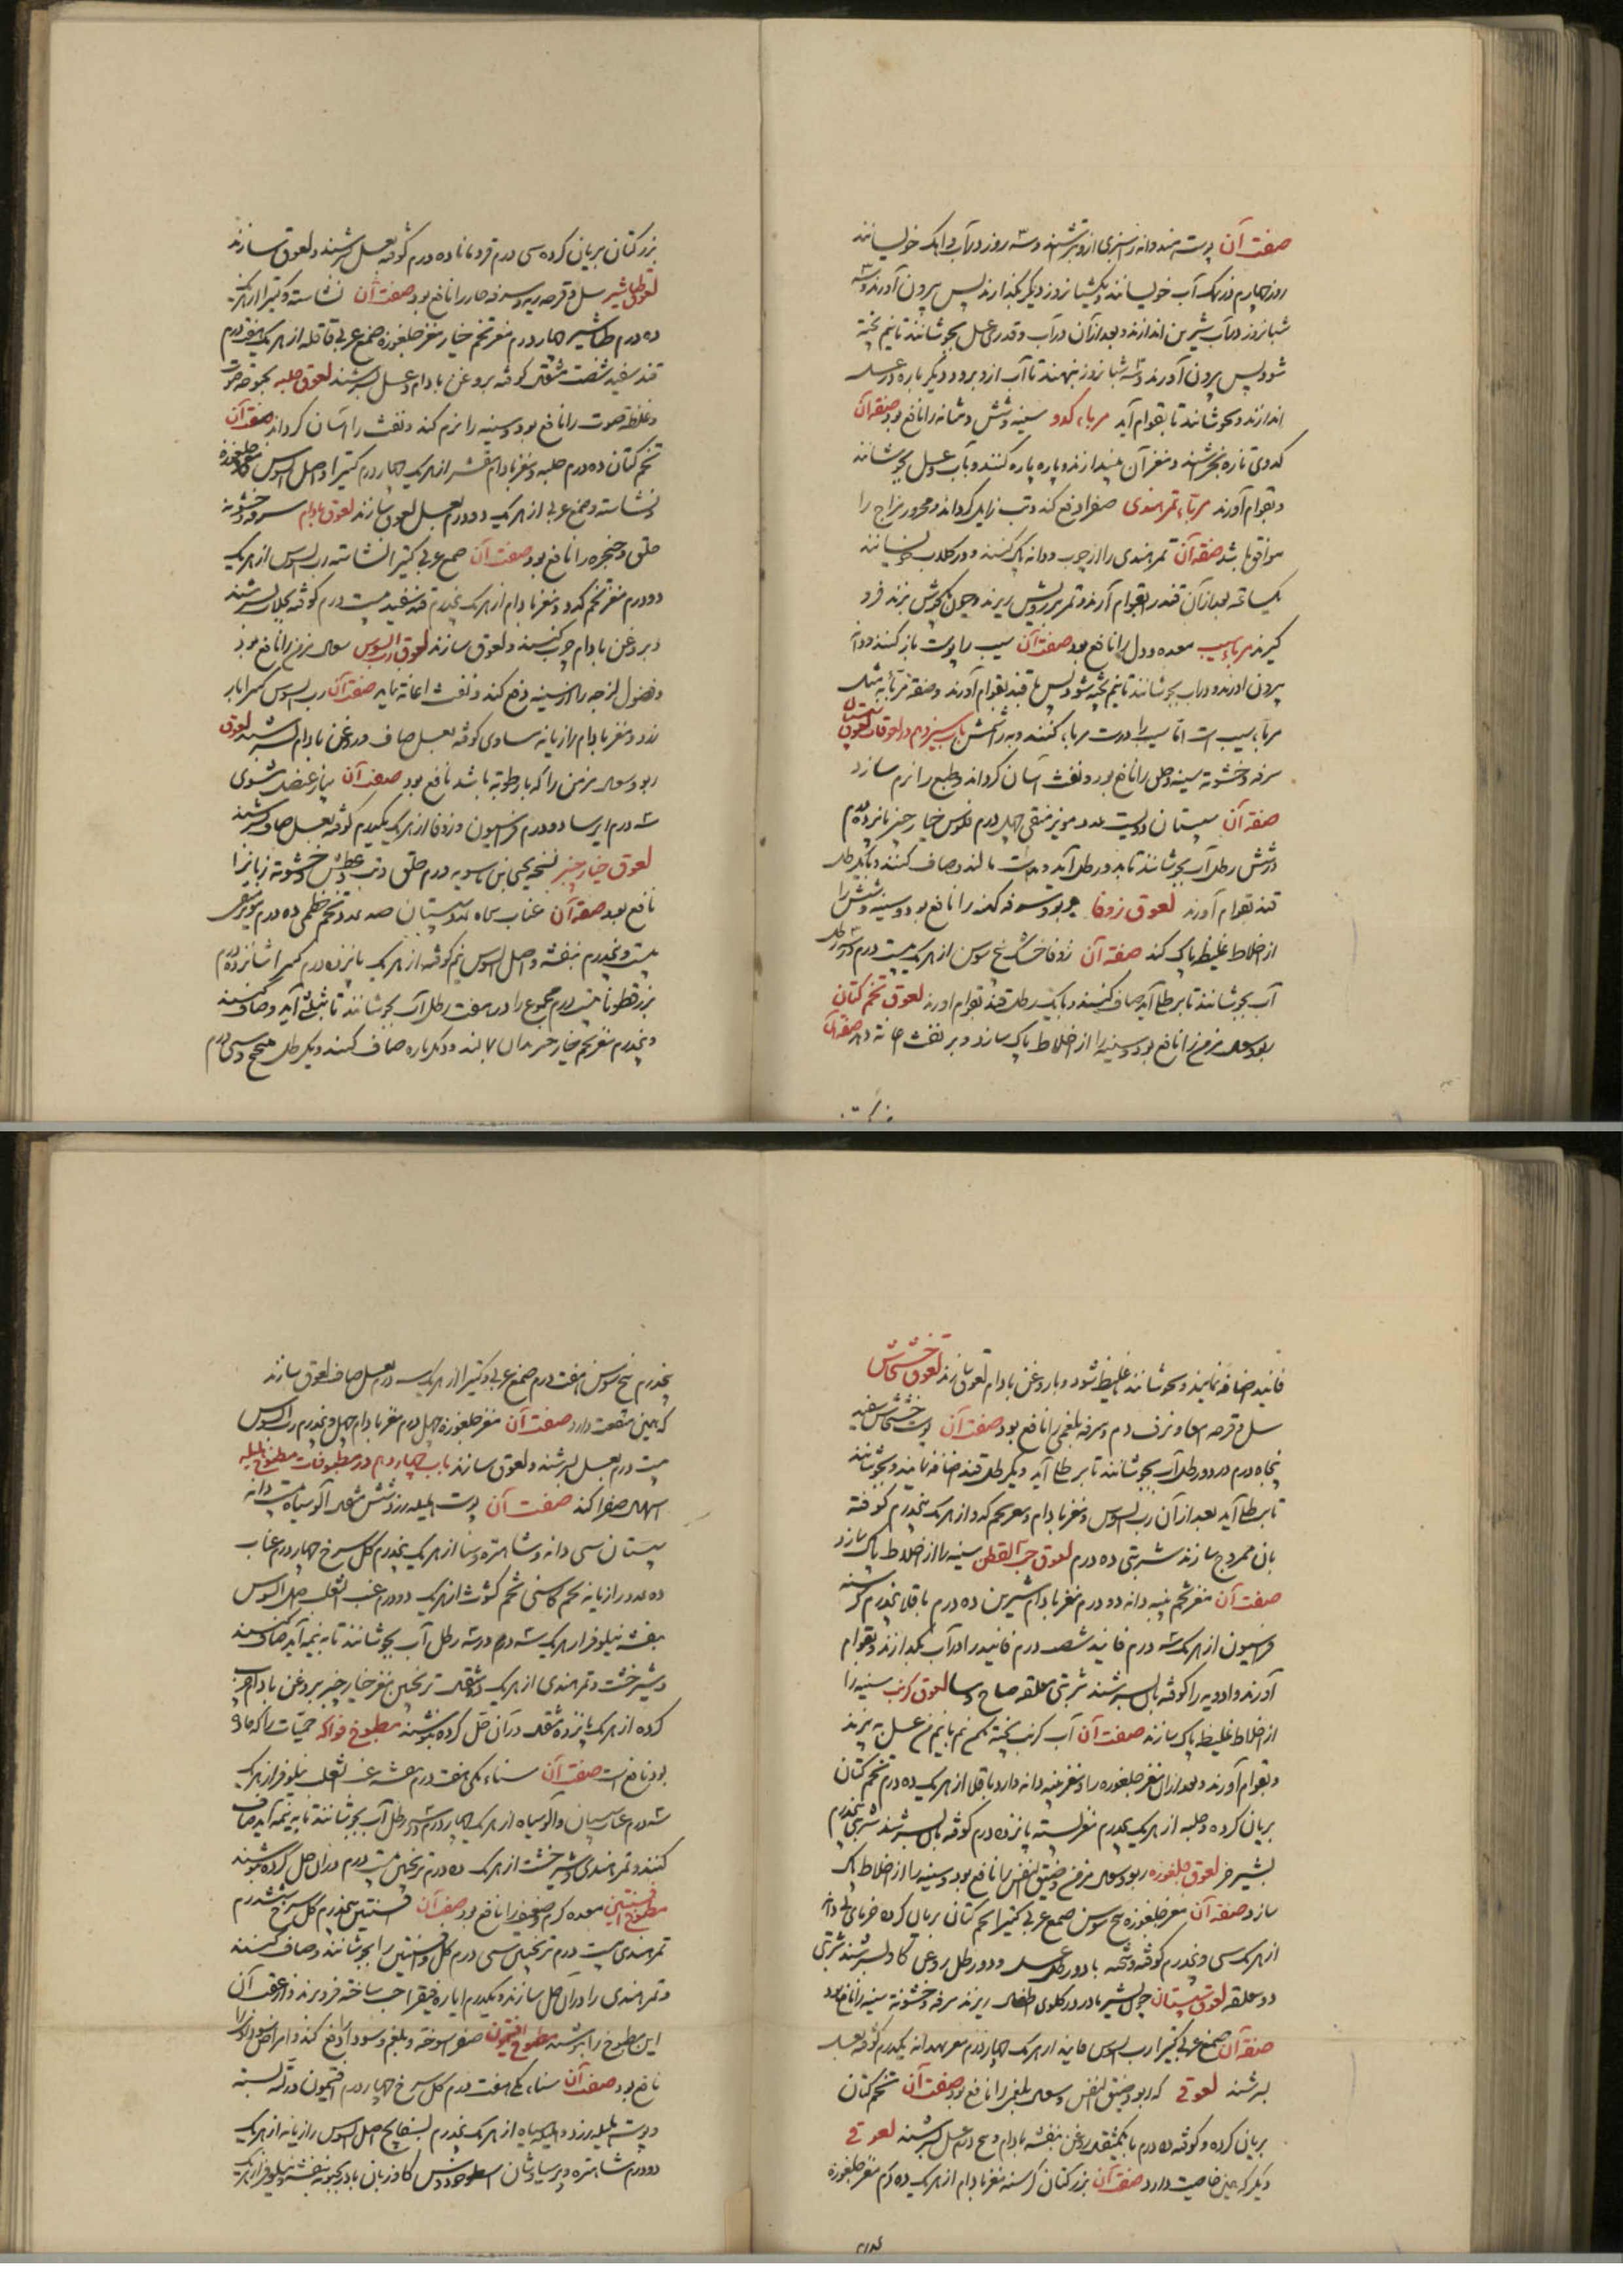 صفت آن پوست هندوانه را سبزی ازو بتراشند و سه روز در آب و آهک خوسانند
روز چهارم در نمک آب خوسانند و یک شبانروز دیگر بگذارند پس بیرون آورند و سه
شبانروز در آب شیرین اندازند و بعد از آن در آب و قدری عسل بجوشانند تا نیم پخته
شود پس بیرون آورند و سه شبانروز بنهند تا آب ازو برود و دیگر باره در عسل
اندازند و بجوشانند تا بقوام آید مرباء کدو سینه و شش و مثانه را نافع بود صفة آن
کدوی تازه بخراشند و مغز آن بیندازند و پاره پاره کنند و بآب و عسل بجوشانند
و بقوام آورند مرباء تمر هندی صفرا دفع کند و تب زایل کرداند و محرور مزاج را
موافق باشد صفة آن تمر هندی را از چوب و دانه پاک کنند و در کلاب خوسانند
یکساعه بعد از آن قند را بقوام آرند و تمر برویش ریزند و چون بجوش بزند فرو
کیرند مرباء سیب معده و دل را نافع بود صفت آن سیب را پوست باز کنند و دانه
بیرون آورند و در آب بجوشانند تا نیم پخته شود پس با قند بقوام آورند
مرباء سیب است اما سیب را درست مربا کنند باب سیزدهم در لعوقات لعوق سپستان
سرفه و خشونة سینه و حلق را نافع بود و نفث آسان کرداند و طبع را نرم سازد
صفة آن سپستان دویست عدد مویز منقی چهل درم فلوس خیار چنبر پانزده درم
در شش رطل آب بجوشانند تا بدو رطل آید و بدست مالند و صاف کنند و با یکرطل
قند بقوام آورند لعوق زوفا ربو و سرفه کهنه را نافع بود و سینه و شش را
از اخلاط غلیظ پاک کند صفة آن زوفا خشک بیخ سوسن از هر یک بیست درم در سه رطل
آب بجوشانند تا برطل آید صاف کنند و با یک رطل قند بقوام آورند لعوق تخم کتان
ربو و سعال مزمن را نافع بود و سینه را از اخلاط پاک سازد و بر نفث اعانة دهد صفة آن
بزر کتان بریان کرده سی درم قردمانا ده درم کوفته بعسل بسرشند و لعوق سازند
لعوق طباشیر سل و قرحه ریه و سرفه حار را نافع بود صفت آن نشاسته و کتیرا از هر یک
ده درم طباشیر چهار درم مغز تخم خیار مغز جلغوزه صمغ عربی قاقله از هر یک هفت درم
قند سفید شصت مثقال کوفته بروغن بادام و عسل بسرشند لعوق حلبه بحوحة صوت
و غلظة صوت را نافع بود و سینه را نرم کند و نفث را آسان کرداند صفت آن
تخم کتان ده درم حلبه و مغز بادام مقشر از هر یک چهار درم کتیرا و اصل السوس مغز جلغوزه
و نشاسته و صمغ عربی از هر یک دو درم بعسل لعوق سازند لعوق بادام سرفه و خشونة
حلق و حنجره را نافع بود صفت آن صمغ عربی کتیرا نشاسته رب السوس از هر یک
دو درم مغز تخم کدو و مغز بادام از هر یک پنجدرم قند سفید بیست درم کوفته بکلاب بسرشند
و بروغن بادام چرب کنند و لعوق سازند لعوق رب السوس سعال مزمن را نافع بود
و فضول لزجه را از سینه دفع کند و نفث اعانة نماید صفة آن رب السوس کتیرا
و مغز بادام رازیانه مساوی کوفته بعسل صاف و روغن بادام بسرشند لعوق
ربو و سعال مزمن را که با رطوبة باشد نافع بود صفة آن پیاز عنصل مشوی
سه درم ایرسا دو درم فراسیون و زوفا از هر یک یکدرم کوفته بعسل صاف بسرشند
لعوق خیار چنبر نسخه یحیی بن ماسویه درم حلق و تب و عطش و خشونة زبان را
نافع بود صفة آن عناب پنجاه عدد سپستان صد عدد تخم خطمی ده درم مویز منقی
بیست و پنجدرم بنفشه و اصل السوس نیم کوفته از هر یک پانزده درم
بزرقطونا بیست درم مجموع را در هفت رطل آب بجوشانند تا بثلثی آید و صاف کنند
و پنجدرم مغز خیار چنبر بدان بمالند و دیکر باره صاف کنند و یکرطل
فانید اضافه نمایند و بجوشانند تا غلیظ شود و با روغن بادام لعوق سازند لعوق خشخاش
سل و قرحه امعا و نزف دم و سرفه بلغمی را نافع بود صفت آن پوست خشخاش سفید
پنجاه درم در دو رطل آب بجوشانند تا برطل آید و یکرطل قند اضافه نمایند و بجوشانند
تا برطل آید بعد از آن رب السوس و مغز بادام و مغز تخم کدو از هر یک پنجدرم کوفته
بآن ممزوج سازند شربتی ده درم لعوق حب القطن سینه را از اخلاط پاک سازد
صفت آن مغز تخم پنبه دانه دو درم مغز بادام شیرین ده درم باقلا پنجدرم کرسنه
فراسیون از هر یک سه درم فانید شصت درم فانید را در آب بگدازند و بقوام
آورند و ادویه را کوفته بآن بسرشند شربتی ملعقه صباح و مسا لعوق کرنب سینه را
از اخلاط غلیظ پاک سازند صفت آن آب کرنب پخته یکمن نیم با نیم من عسل بپزند
و بقوام آورند و بعد از آن مغز جلغوزه و مغز پنبه دانه و آرد باقلا از هر یک ده درم تخم کتان
بریان کرده و حلبه از هر یک پنجدرم مغز پسته پانزده درم کوفته بآن بسرشند شربتی پنجدرم
بشیر خر لعوق جلغوزه ربو و سعال مزمن و ضیق النفس را نافع بود و سینه را از اخلاط پاک
سازد صفة آن مغز جلغوزه بیخ سوسن صمغ عربی کتیرا تخم کتان بریان کرده خرمای بی دانه
از هر یک سی و پنجدرم کوفته و بیخته با دو رطل عسل و دو رطل روغن کاو بسرشند شربتی
دو ملعقه لعوق سپستان چون بشیر مادر در کلوی اطفال ریزند سرفه و خشونة سینه را نافع بود
صفة آن صمغ عربی کتیرا رب السوس فانید از هر یک چهار درم مغز بهدانه یکدرم کوفته بعسل
بسرشند لعوقی که ربو و ضیق النفس و سعال بلغمی را نافع بود صفت آن تخم کتان
بریان کرده و کوفته ده درم با یکمثقال روغن بنفشه بادام و پنج درم عسل بسرشند لعوقی
دیکر که همین خاصیت دارد صفت آن بزر کتان کرسنه مغز بادام از هر یک ده درم مغز جلغوزه
پنجدرم بیخ سوسن هفت درم صمغ عربی و کتیرا از هر یک سه درم بعسل صاف لعوق سازند
که همین منفعت دارد صفت آن مغز جلغوزه چهل درم مغز بادام چهل و پنجدرم رب السوس
بیست درم بعسل بسرشند و لعوق سازند باب چهاردهم در مطبوخات مطبوخ هلیله
اسهال صفرا کند صفت آن پوست هلیله زرد شش مثقال آلو سیاه بیست دانه
سپستان سی دانه و شاهتره و سنا از هر یک پنجدرم کل سرخ چهار درم عناب
ده عدد رازیانه تخم کاسنی تخم کشوث از هر یک دو درم عنب الثعلب اصل السوس
بنفشه نیلوفر از هر یک سه درم در سه رطل آب بجوشانند تا به نیمه آید صاف کنند
و شیرخشت و تمر هندی از هر یک ده مثقال ترنجبین مغز خیار چنبر بروغن بادام چرب
کرده از هر یک پانزده مثقال در آن حل کرده بنوشند مطبوخ فواکه حمیات را که ماده
بود نافع است صفت آن سناء مکی هفت درم بنفشه عنب الثعلب نیلوفر از هر یک
سه درم عناب سپستان و آلو سیاه از هر یک چهار درم در سه رطل آب بجوشانند تا به نیمه آید صاف
کنند و تمر هندی و شیرخشت از هر یک ده درم ترنجبین بیست درم در آن حل کرده بنوشند
مطبوخ افسنتین معده کرم و ضعیف را نافع بود صفت آن افسنتین پنجدرم کل سرخ شش درم
تمر هندی بیست درم ترنجبین سی درم کل و افسنتین را بجوشانند و صاف کنند
و تمر هندی را در آن حل سازند و یکدرم ایاره فیقرا حب ساخته فرو برند و از عقب آن
این مطبوخ را بنوشند مطبوخ افتیمون صفراء سوخته و بلغم و سودا را دفع کند و امراض سوداوی را
نافع بود صفت آن سناء مکی هفت درم کل سرخ چهار درم افتیمون در لته بسته
و پوست هلیله زرد و هلیله سیاه از هر یک پنجدرم بسفایج اصل السوس رازیانه از هر یک
دو درم شاهتره و پرسیاوشان اسطوخودوس کاوزبان بادرنجبویه بنفشه و نیلوفر از هر یک